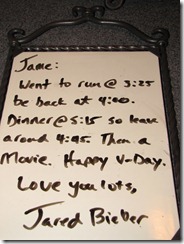 Jame:
Went to run @ 3:25
be back at 4:00.
Dinner @ 5:15 so leave
around 4:45. Then a
Movie. Happy V-Day.
Love you lots,
Jared Bieber